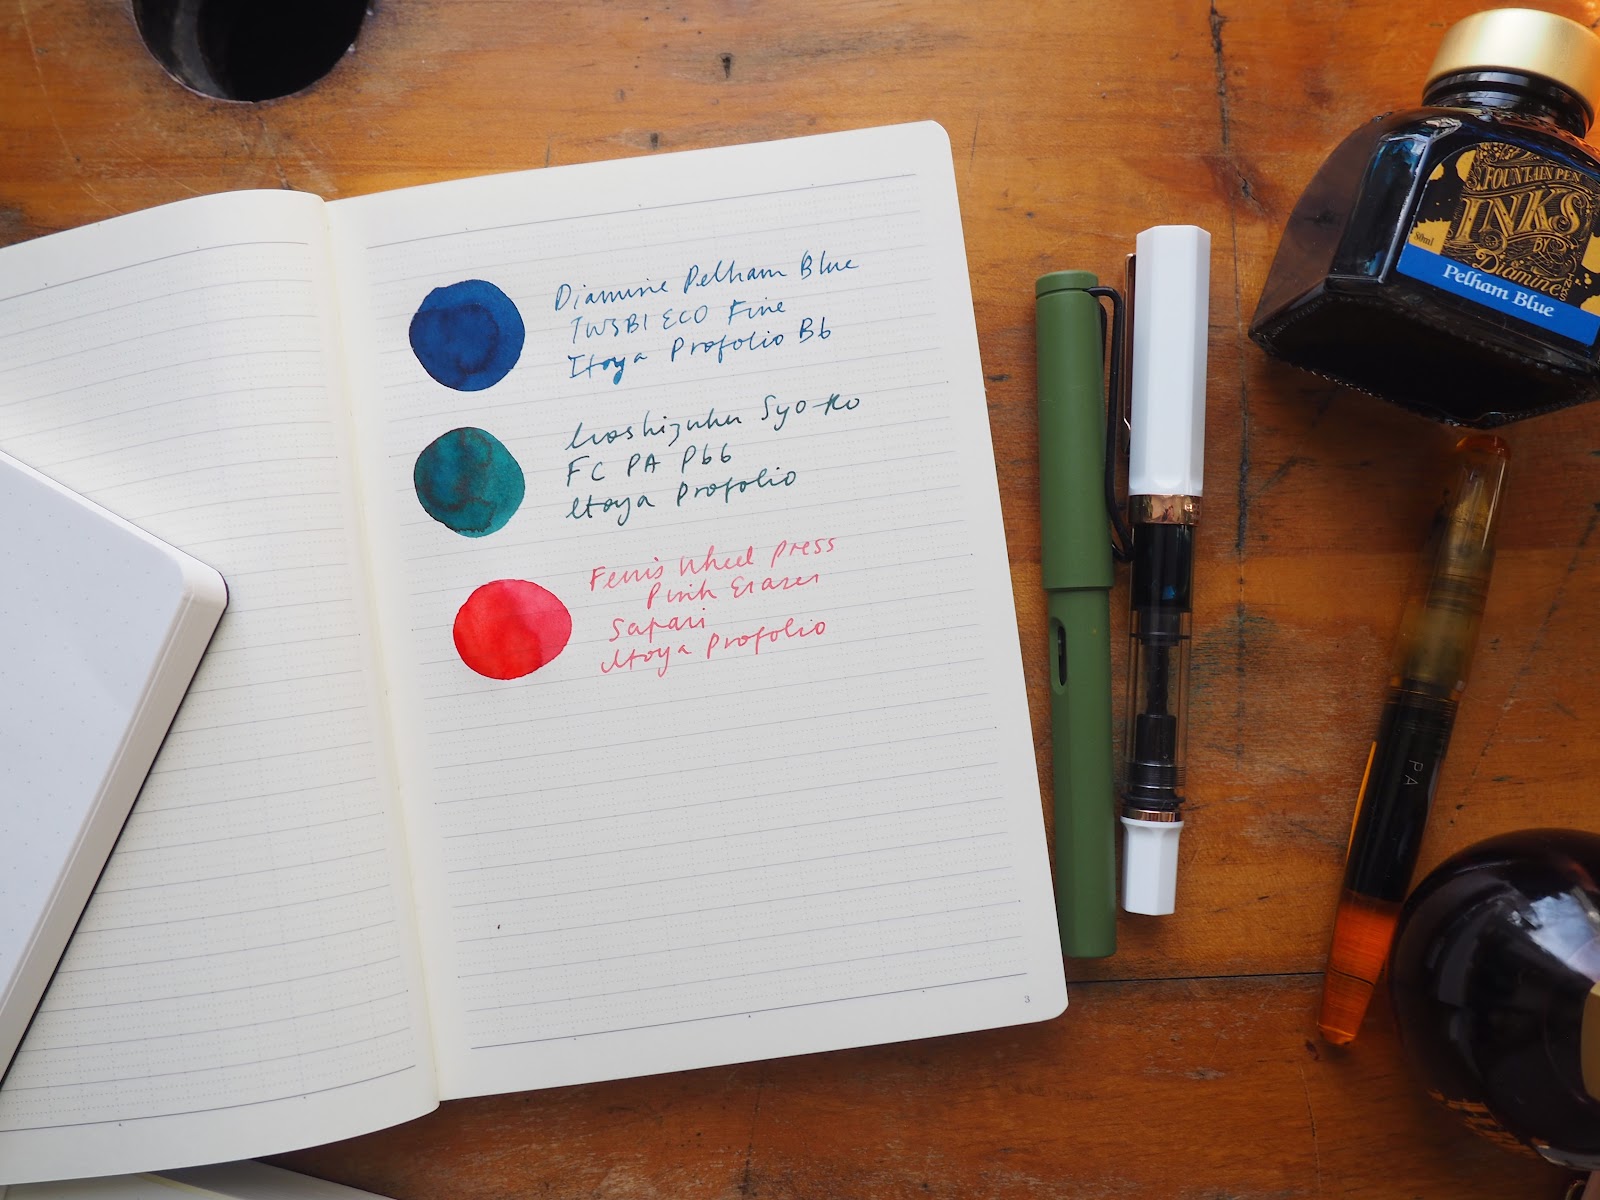 Diamine Pelham Blue
TWSBI ECO Fine
Itoya Profolio B6
Iroshizuku Syo-ro
FC PA P66
Itoya Profolio
Ferris Wheel Press
Pink Eraser
Safari
Itoya Profolio
3
FOUNTAIN PEN
INKS
80ml
BY
Diamine
INKS
Pelham Blue
PA